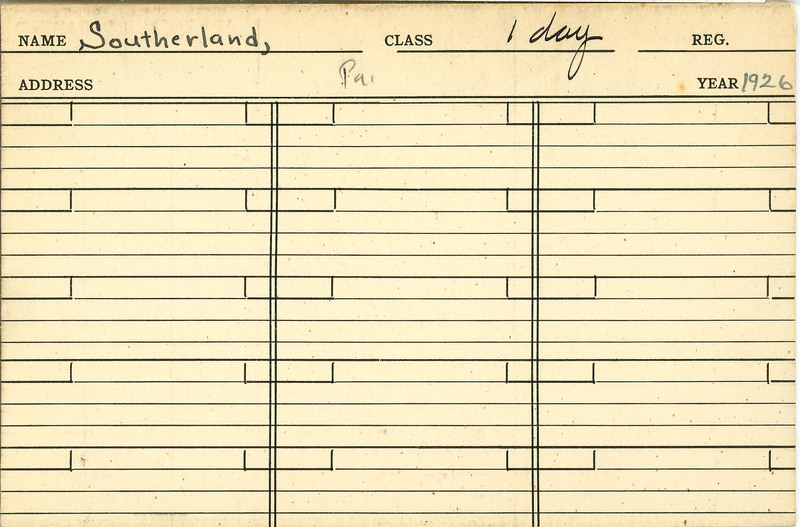 NAME Southerland, CLASS 1 day REG.
ADDRESS Pa. YEAR 1926